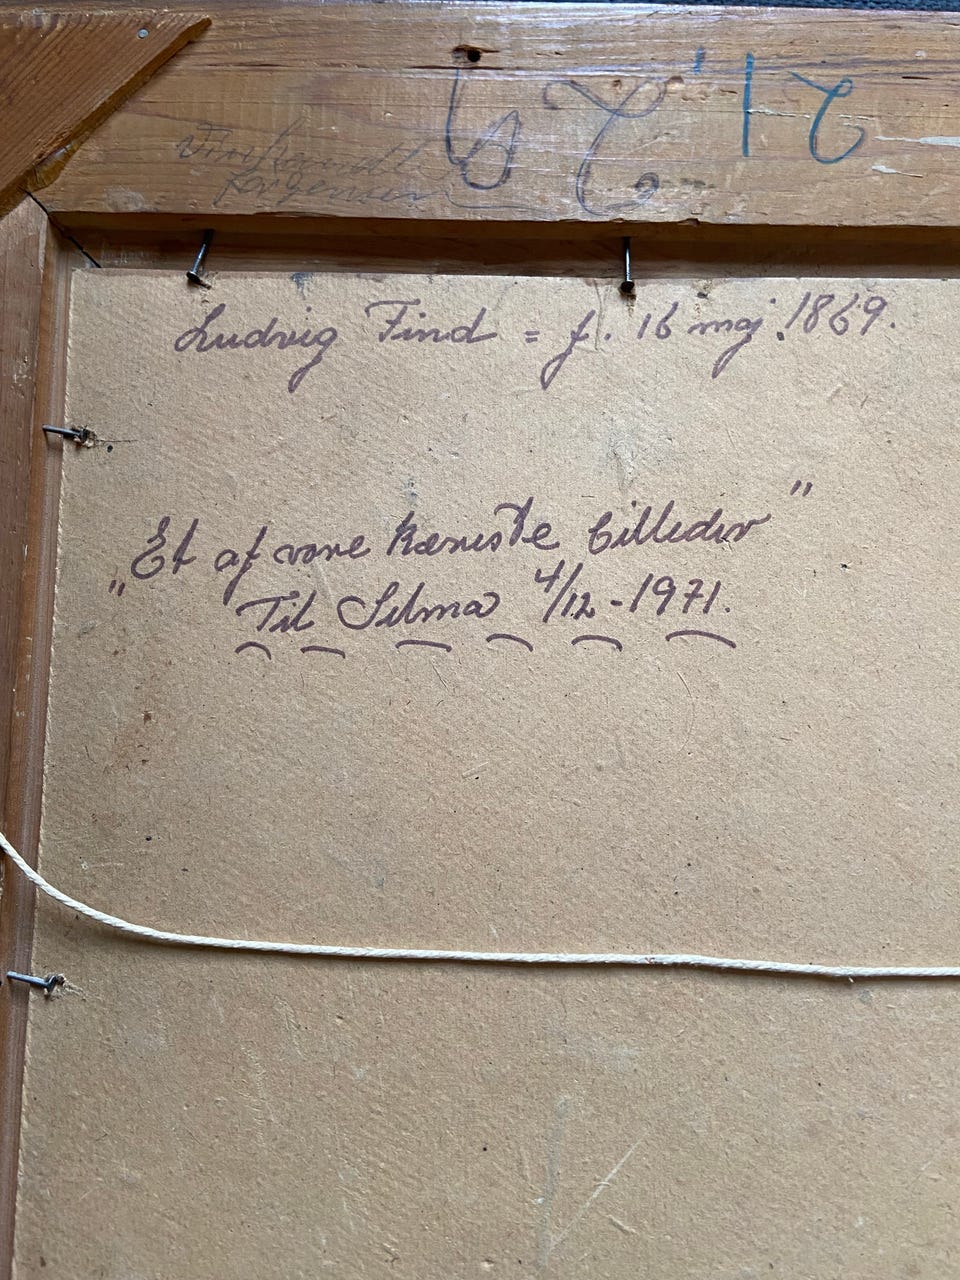 Jørgensen
Ludvig Find = f. 16 maj. 1869.
„Et af vore kæreste billeder"
Til Selma 4/12 - 1971.